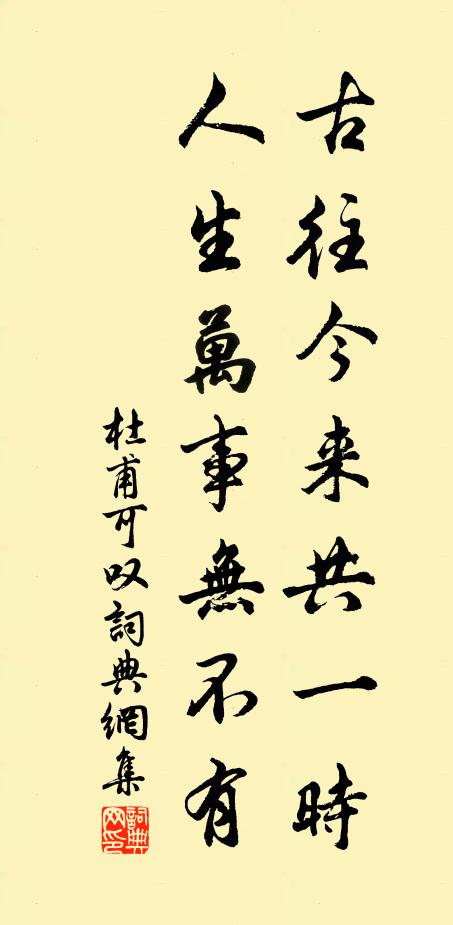 古往今来共一時
人生萬事無不有
杜甫可叹詞典網集
詞典
网印